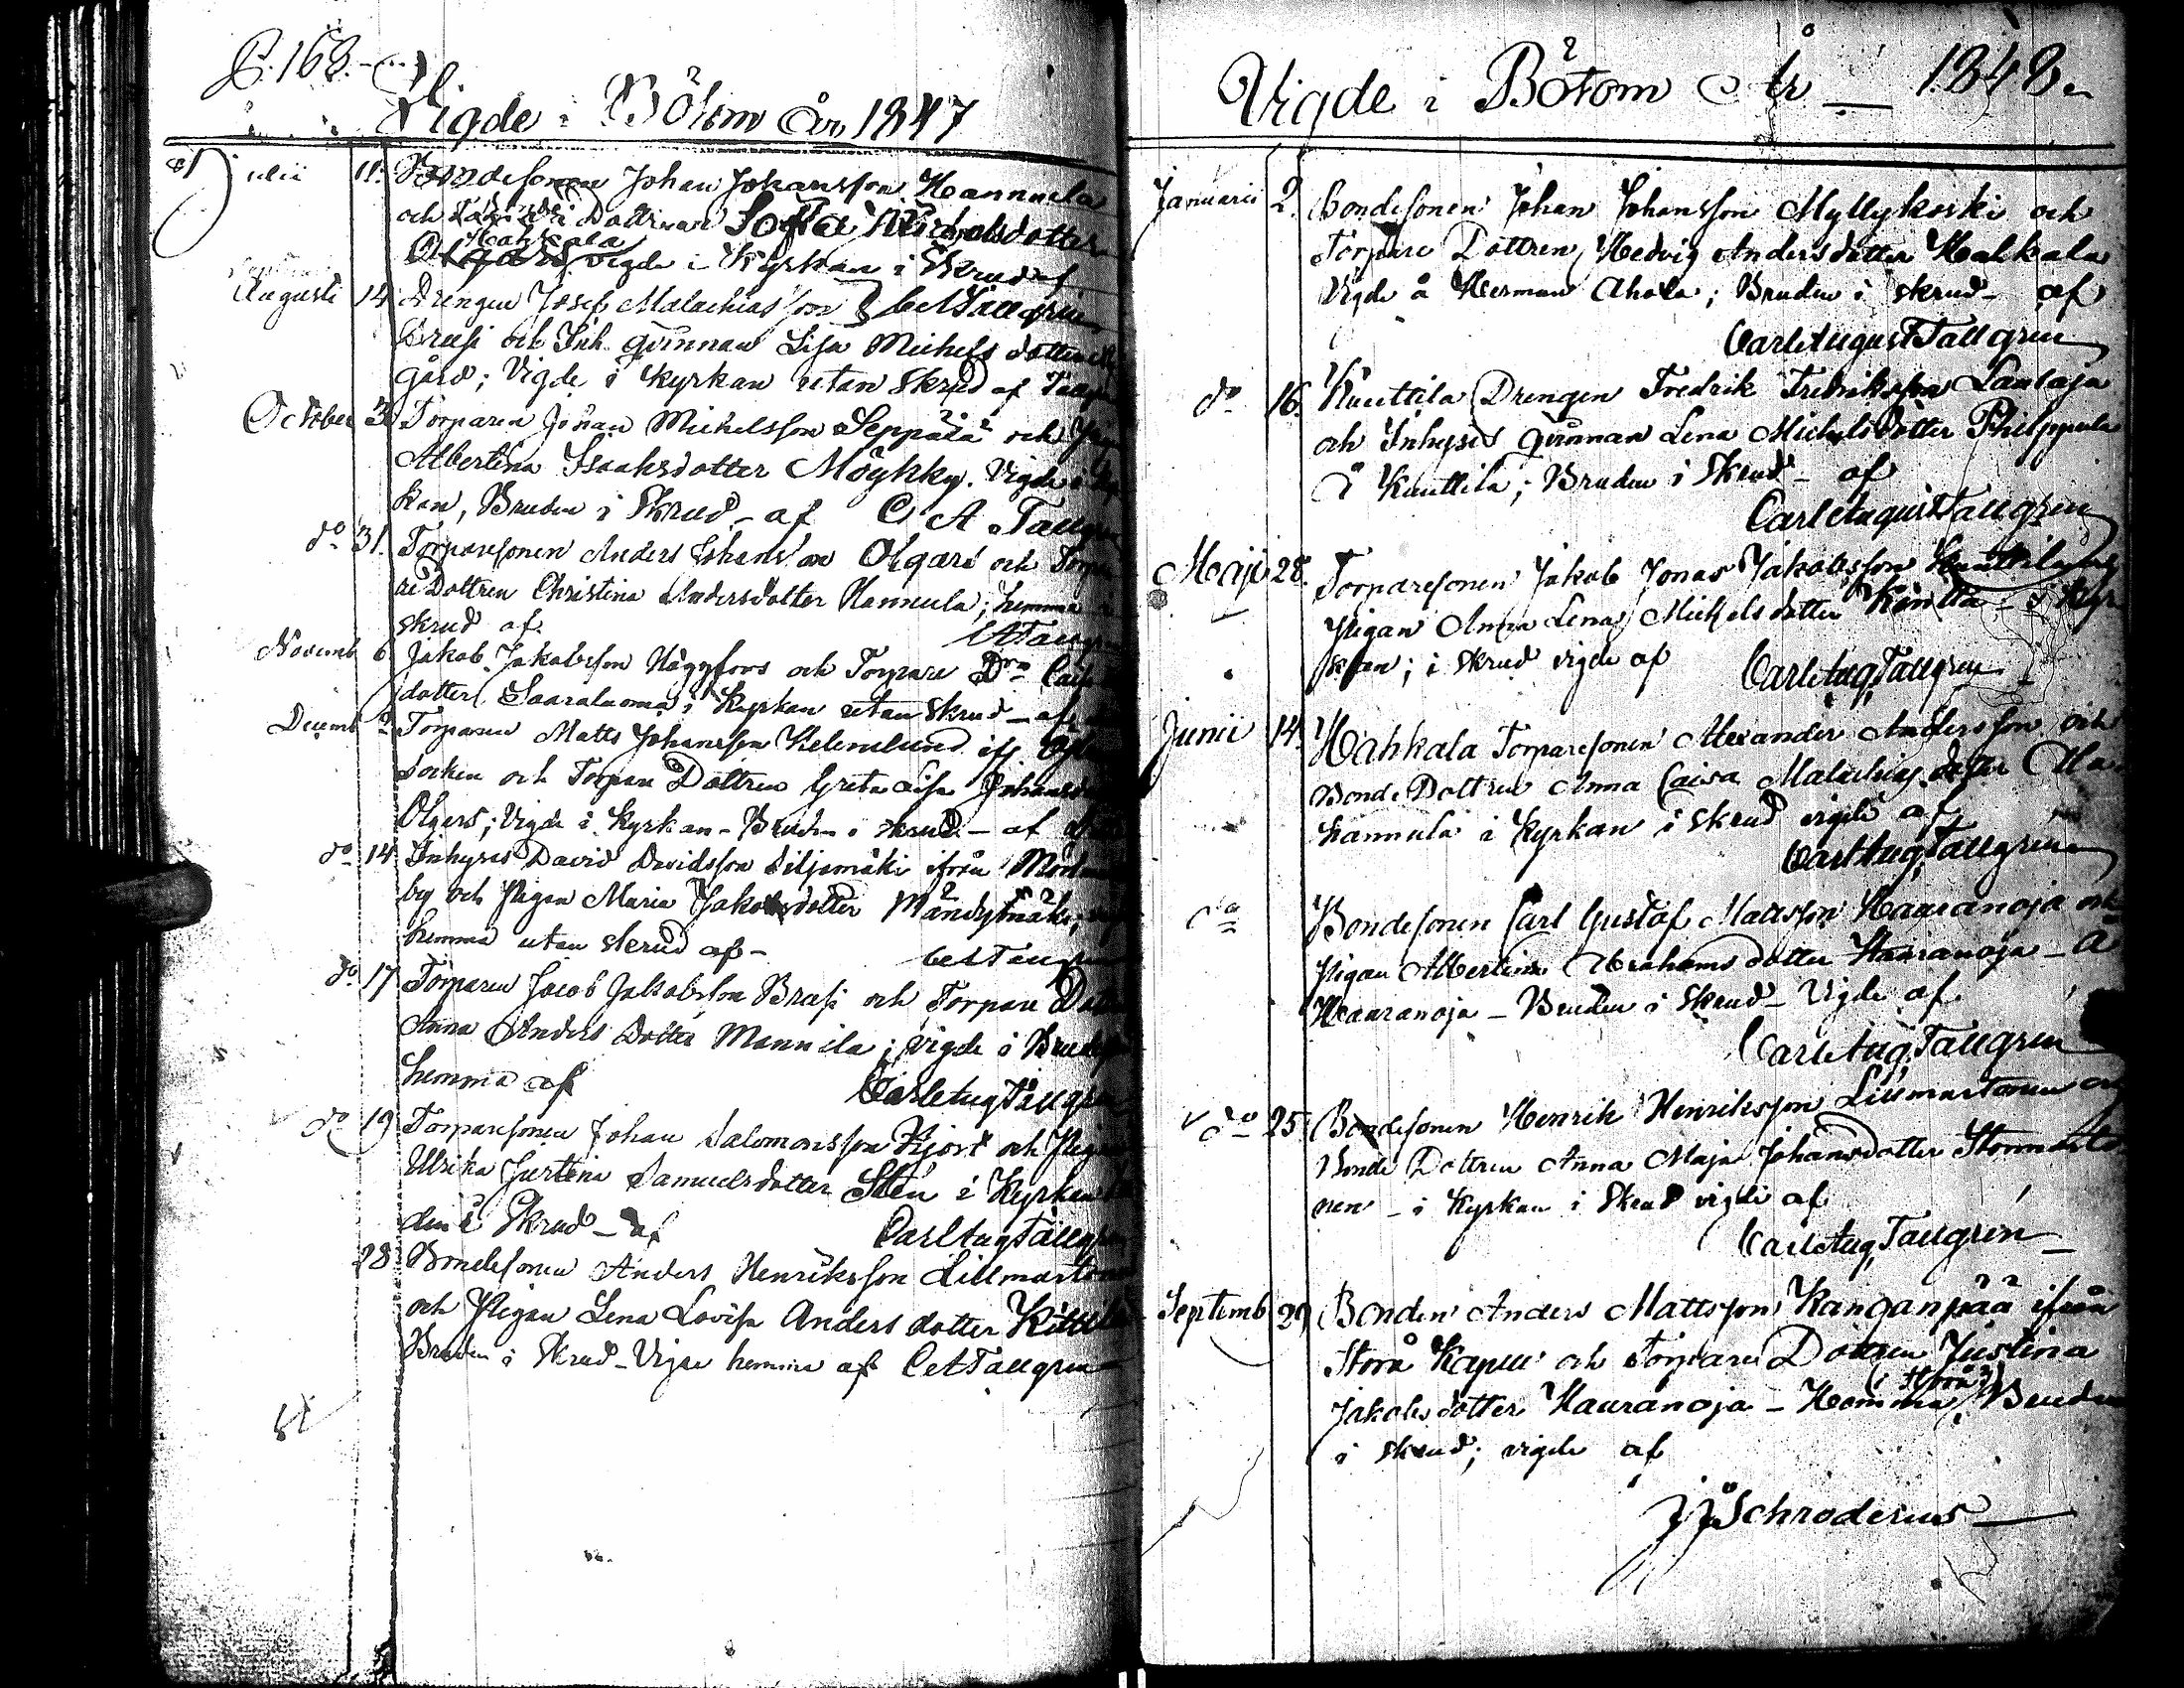 P. 168.
Vigde i Bötom År 1847
Julii 11. Bondesonen Johan Johansson Hannula
och Dottren Sofia Michelsdotter
Hahkala
Olgars vigde i Kyrkan i Skrud af
Augusti 14 Drengen Josef Malachiasson CATallgren
Brusi och Inh. qvinnan Lisa Michels dotter
gård; Vigde i Kyrkan utan Skrud af Tallgren
October 3 Torparen Johan Michelsson Seppälä och
Albertina Isaaksdotter Möykky. Vigde i Kyr
kan, Bruden i Skrud - af C A Tallgren
do 31. Torparesonen Anders Johansson Olgars och Torpa
re Dottren Christina Andersdotter Hannula; hemma i
skrud af. CATallgren
Novemb 6 Jakob Jakobsson Häggfors och Torpare Drn
dotter Saaraluoma i Kyrkan utan Skrud - af
Decemb 2 Torparen Matts Johansson
Socken och Torpare Dottren Greta Lisa Johansd
Olgers; Vigde i Kyrkan - Bruden i skrud - af
do 14 Inhyses David Davidsson Siljamäki ifrån
by och Pigan Maria Jakobsdotter Mändymäki;
hemma utan skrud af - CATallgren
do 17 Torparen Jacob Jakobsson Brusi och Torpare Dottren
Anna Anders Dotter Mannila; vigde i Brudskrud
hemma af CarlAugTallgren
do 19 Torparesonen Johan Salomonsson Hjort och Pigan
Ulrika Justina Samuelsdotter Sten i Kyrkan
den i Skrud - af CarlAugTallgren
28 Bondesonen Anders Henriksson Lillmartonen
och Pigan Lena Lovisa Anders dotter
Bruden i Skrud - Vigde hemma af CATallgren
Vigde i Bötom År 1848
Januarii 2. Bondesonen Johan Johansson Myllykoski och
Torpare Dottren Hedvig Andersdotter Hahkala
Vigde å Herman Ahola; Bruden i skrud - af
CarlAugustTallgren
do 16. Knuttila Drengen Fredrik Fredriksson Lautaja
och Inhyses qvinnan Lena Michelsdotter Philppula
å Knuttila; Bruden i Skrud - af
CarlAugustTallgren
Maji 28. Torparesonen Jakob Jonas Jakobsson Knuttila och
Pigan Anna Lena Michelsdotter - i Kyr
kan; i skrud vigde af CarlAugTallgren
Junii 14. Hahkala Torparesonen Alexander Andersson och
Bonde Dottren Anna Caisa Malachias dotter Ala
hannula i Kyrkan i skrud vigde af
CarlAugTallgren
do Bondesonen Carl Gustaf Mattsson Hauranoja och
Pigan Albertina Abrahams dotter Hauranoja - å
Hauranoja - Bruden i Skrud - Vigde af
CarlAugTallgren
do 25 Bondesonen Henrik Henriksson Lillmartonen och
Bonde Dottren Anna Maja Johansdotter Stormarto
nen - i Kyrkan i Skrud vigde af
CarlAugTallgren
Septemb 29 Bonden Anders Mattsson Kanganpää ifrån
Storå Kapell och Torpare Dottren Justina
(i Storå)
Jakobsdotter Hauranoja - Hemma, Bruden
i skrud; vigde af
JJSchroderus